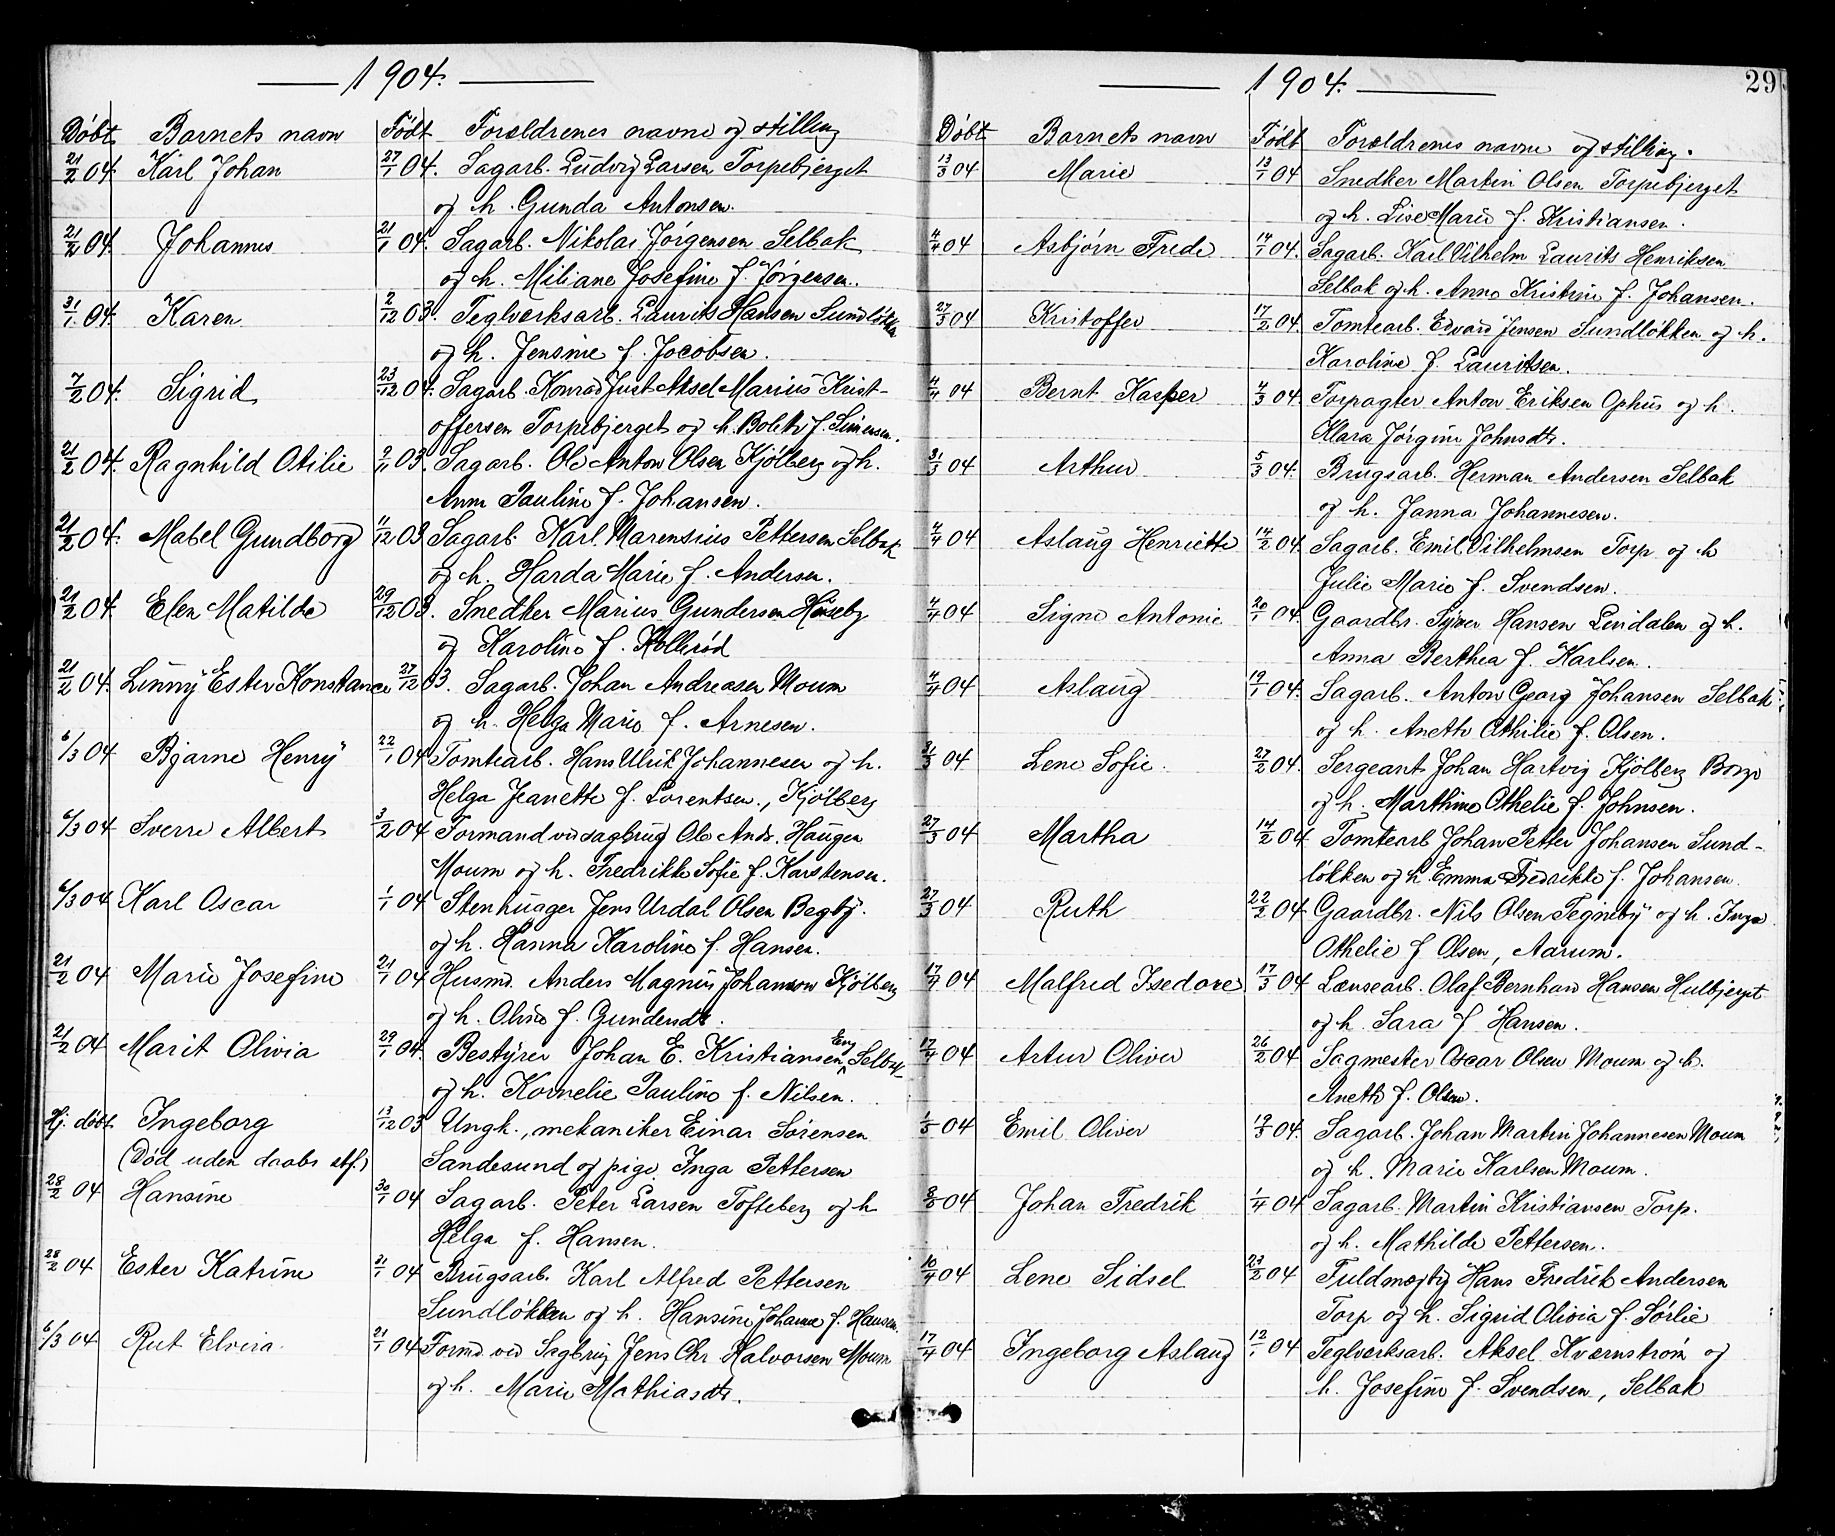 1904.
Döbt Barnets navn Födt Forældrenes navne og stilling
21/2 04. Karl Johan 27/1 04. Sagarb. Ludvig Larsen Torpebjerget
og h. Gunda Antonsen.
21/2 04. Johannes 21/1 04. Sagarb. Nikolai Jörgensen Selbak
og h. Miliane Josefine f. Jörgensen.
31/1 04. Karen 2/12 03. Teglverksarb. Laurits Hansen Sundlökken
og h. Jensine f. Jacobsen.
7/2 04. Sigrid 23/12 04. Sagarb. Konrad Just Aksel Marius Krist-
offersen Torpebjerget og h. Bolette f. Simensen.
21/2 04. Ragnhild Otilie 2/11 03. Sagarb. Ole Anton Olsen Kjölberg og h.
Anne Pauline f. Johansen.
21/2 04. Mabel Gundborg 11/12 03 Sagarb. Karl Marensius Pettersen Selbak
og h. Harda Marie f. Andersen.
21/2 04. Elen Matilde 29/12 03. Snedker Marius Gundersen Huseby
og Karoline f. Kollerød
21/2 04. Linny Ester Konstance 27/12 03. Sagarb. Johan Andreasen Moum
og h. Helga Marie f. Arnesen.
6/3 04 Bjarne Henry 22/1 04 Tomtearb. Hans Ulrik Johannesen og h.
Helga Jeanette f. Lorentsen., Kjölberg
6/3 04 Sverre Albert 3/2 04 Formand ved sagbrug Ole Andr. Haugen
Moum og h. Fredrikke Sofie f. Karstensen.
6/3 04 Karl Oscar 1/1 04 Stenhugger Jens Urdal Olsen Begby.
og h. Hanna Karoline f. Hansen.
21/2 04 Marie Josefine 21/1 04 Husmd. Anders Magnus Johansen Kjölberg
og h. Oline f. Gundersdt.
21/2 04 Marit Olivia 29/1 04. Bestyrer Johan E. Kristiansen Eng Selbak
og h. Kornelie Pauline f. Nilsen.
Hj. döbt. Ingeborg 13/12 03 Ungk., mekaniker Einar Sörensen
(Död uden daabs atf.) Sandesund og pige Inga Pettersen
28/2 04 Hansine 30/1 04 Sagarb. Peter Larsen Tofteberg og h
Helga f. Hansen.
28/2 04 Ester Katrine 21/1 04 Brugsarb. Karl Alfred Pettersen
Sundlökken og h. Hansine Johanne f. Hansen.
6/3 04 Rut Elvira. 21/1 04 Formd ved Sagbrug Jens Chr Halvorsen Moum
og h. Marie Mathiasdt.
1904. 29
Döbt Barnets navn Födt Forældrenes navne og stilling.
13/3 04 Marie 13/1 04 Snedker Martin Olsen Torpebjerget
og h. Lise Marie f. Kristiansen.
4/4 04 Asbjörn Frede 14/1 04. Sagarb. Karl Vilhelm Laurits Henriksen
Selbak og h. Anne Kristine f. Johansen.
27/3 04 Kristoffer 17/2 04. Tomtearb. Edvard Jensen Sundlökken og h.
Karoline f. Lauritsen.
4/4 04 Bernt Kasper 4/3 04. Torpagter Anton Eriksen Ophus og h.
Klara Jörgine Johnsdt.
31/3 04 Arthur 5/3 04. Brugsarb. Herman Andersen Selbak
og h. Janna Johannesen.
4/4 04 Aslaug Henriette 14/2 04. Sagarb. Emil Vilhelmsen Torp og h
Julie Marie f. Svendsen.
4/4 04 Signe Antonie 20/1 04. Gaardbr. Syver Hansen Lindalen og h.
Anna Berthea f. Karlsen.
4/4 04 Aslaug 19/1 04. Sagarb. Anton Georg Johansen Selbak
og h. Anethe Othilie f. Olsen.
31/3 04 Lene Sofie. 27/2 04. Sergeant Johan Hartvig Kjölberg Borge
og h. Marthine Othelie f. Johnsen.
27/3 04 Martha 14/2 04 Tomtearb Johan Petter Johansen Sund-
lökken og h Emma Fredrikke f. Johansen.
27/3 04 Ruth 22/2 04 Gaardbr. Nils Olsen Tegneby og h. Inga
Othelie f Olsen, Aarum.
17/4 04 Malfred Isedore 17/3 04 Lænsearb. Olaf Bernhard Hansen Hulbjerget
og h. Sara f Hansen.
17/4 04 Artur Oliver 26/2 04 Sagmester Oscar Olsen Moum og h.
Anethe f. Olsen.
1/5 04 Emil Oliver 19/3 04. Sagarb. Johan Martin Johannesen Moum
og h. Marie Karlsen Moum.
8/5 04 Johan Fredrik 1/4 04 Sagarb. Martin Kristiansen Torp.
og h. Mathilde Pettersen.
10/4 04 Lene Sidsel 23/2 04 Fuldmægtig Hans Fredrik Andersen
Torp og h. Sigrid Olivia f. Sörlie
17/4 04 Ingeborg Aslaug 12/1 04 Teglverksarb. Aksel Kværnström og
h. Josefine f. Svendsen, Selbak